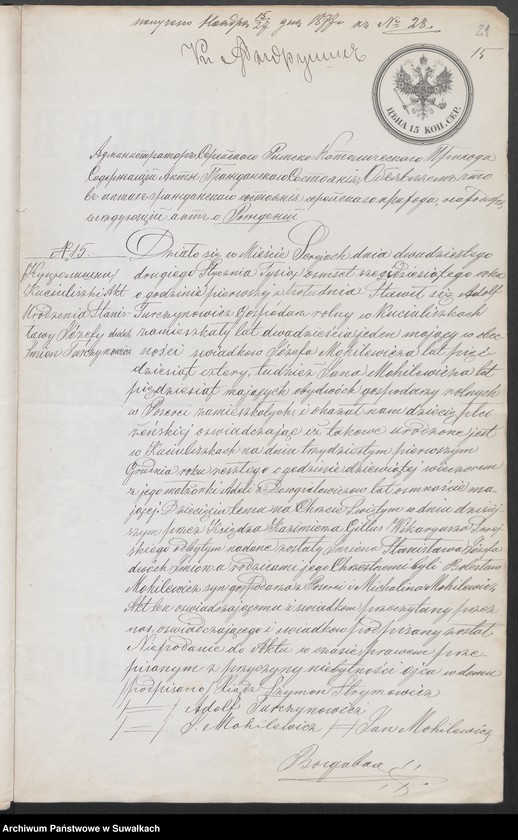 получено Ноября 15/27 дня 1877 г. за № 23.
21
15
ЦѢНА 15 КОП. СЕР.
Администраторъ Сейнскаго Римско Католическаго Прихода
Содержащій Акты Гражданскаго Состоянія, Объявляетъ что
въ актахъ гражданскаго состоянія приход
слѣдующій актъ о Рожденіи
№ 15.
Kuciuliszki Akt
Urodzenia Stanis-
ławy Józefy dwóch
Imion Turczynowicz
Działo się w Mieście Serejach dnia dwudziestego
drugiego Stycznia Tysiąc ośmset roku
o godzinie pierwszej z południa Stawił się Adolf
Turczynowicz Gospodarz rolny w Kuciuliszkach
zamieszkały lat dwadzieścia jeden mający w obec
ności świadków Józefa Mohilewicza lat pięć
dziesiąt cztery, tudzież Jana Mohilewicza lat
pięćdziesiąt mających obydwóch gospodarzy rolnych
w Poserei zamieszkałych i okazał nam dziecię płci
żeńskiej oświadczając iż takowe urodzone jest
w Kuciuliszkach na dniu trzydziestym pierwszym
Grudnia roku zeszłego o godzinie dziewiątej wieczorem
z jego małżonki Adeli z lat ośmnaście ma-
jącej. Dziecięciu temu na Chrzcie Świętym w dniu dzisiej-
szym przez Księdza Kazimierza Wikaryusza Serej-
skiego odbytym nadane zostały Imiona Stanisława Józefa
dwóch imion a rodzicami jego Chrzestnemi byli Bolesław
Mohilewicz syn gospodarza z Poserei i Michalina Mohilewicz
Akt ten oświadczającemu i świadkom przeczytany przez
nas, oświadczającego i świadków podpisany został
Niepodanie do Aktu w czasie prawem prze
pisanym z przyczyny niebytności ojca w domu
/podpisano/ Ksiądz Szymon Strymowicz
Adolf Turczynowicz
J. Mohilewicz Jan Mohilewicz
Archiwum Państwowe w Suwałkach